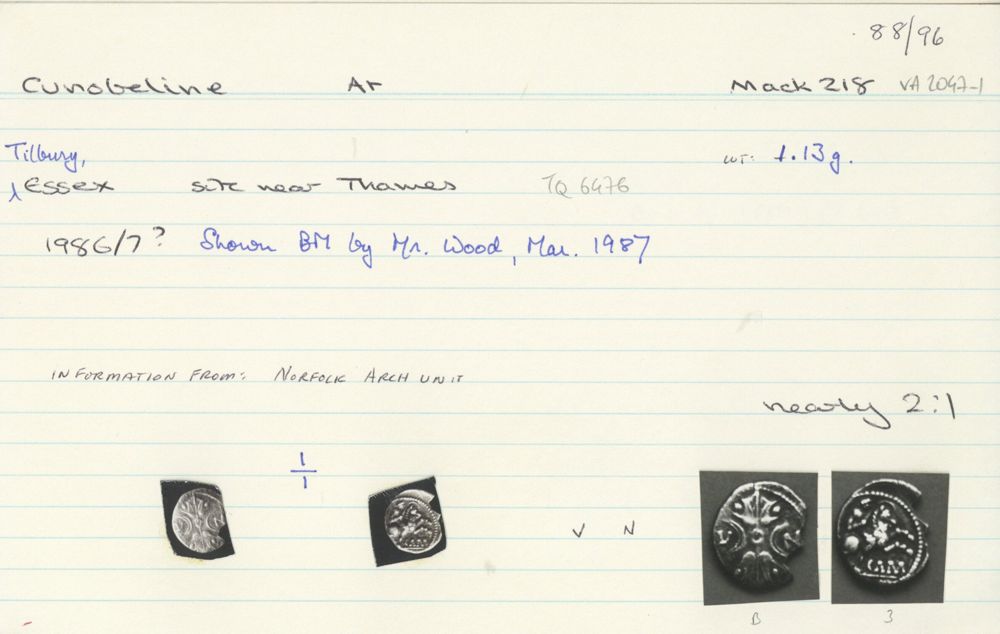 88/96
Cunobeline Ar Mack 218 VA 2047-1
Tilbury,
Essex site near Thames TQ 6476
wt: 1.13g.
1986/7? Shown BM by Mr. Wood, Mar. 1987
INFORMATION FROM: NORFOLK ARCH UNIT
nearly 2:1
1
1
V N
B 3